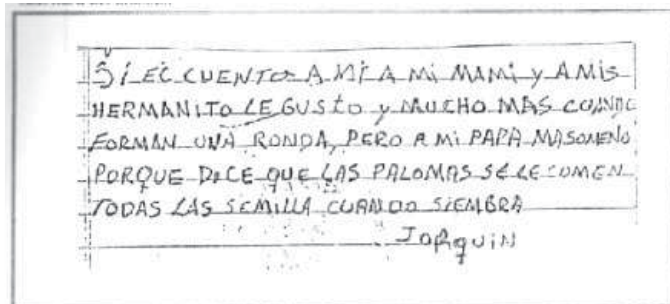 SI EL CUENTO A MI A MI MAMI y A MIS
HERMANITO LE GUSTO y MUCHO MAS CUANDO
FORMAN UNA RONDA, PERO A MI PAPA MASOMENO
PORQUE DICE QUE LAS PALOMAS SE LE COMEN
TODAS LAS SEMILLA CUANDO SIEMBRA
JOAQUIN